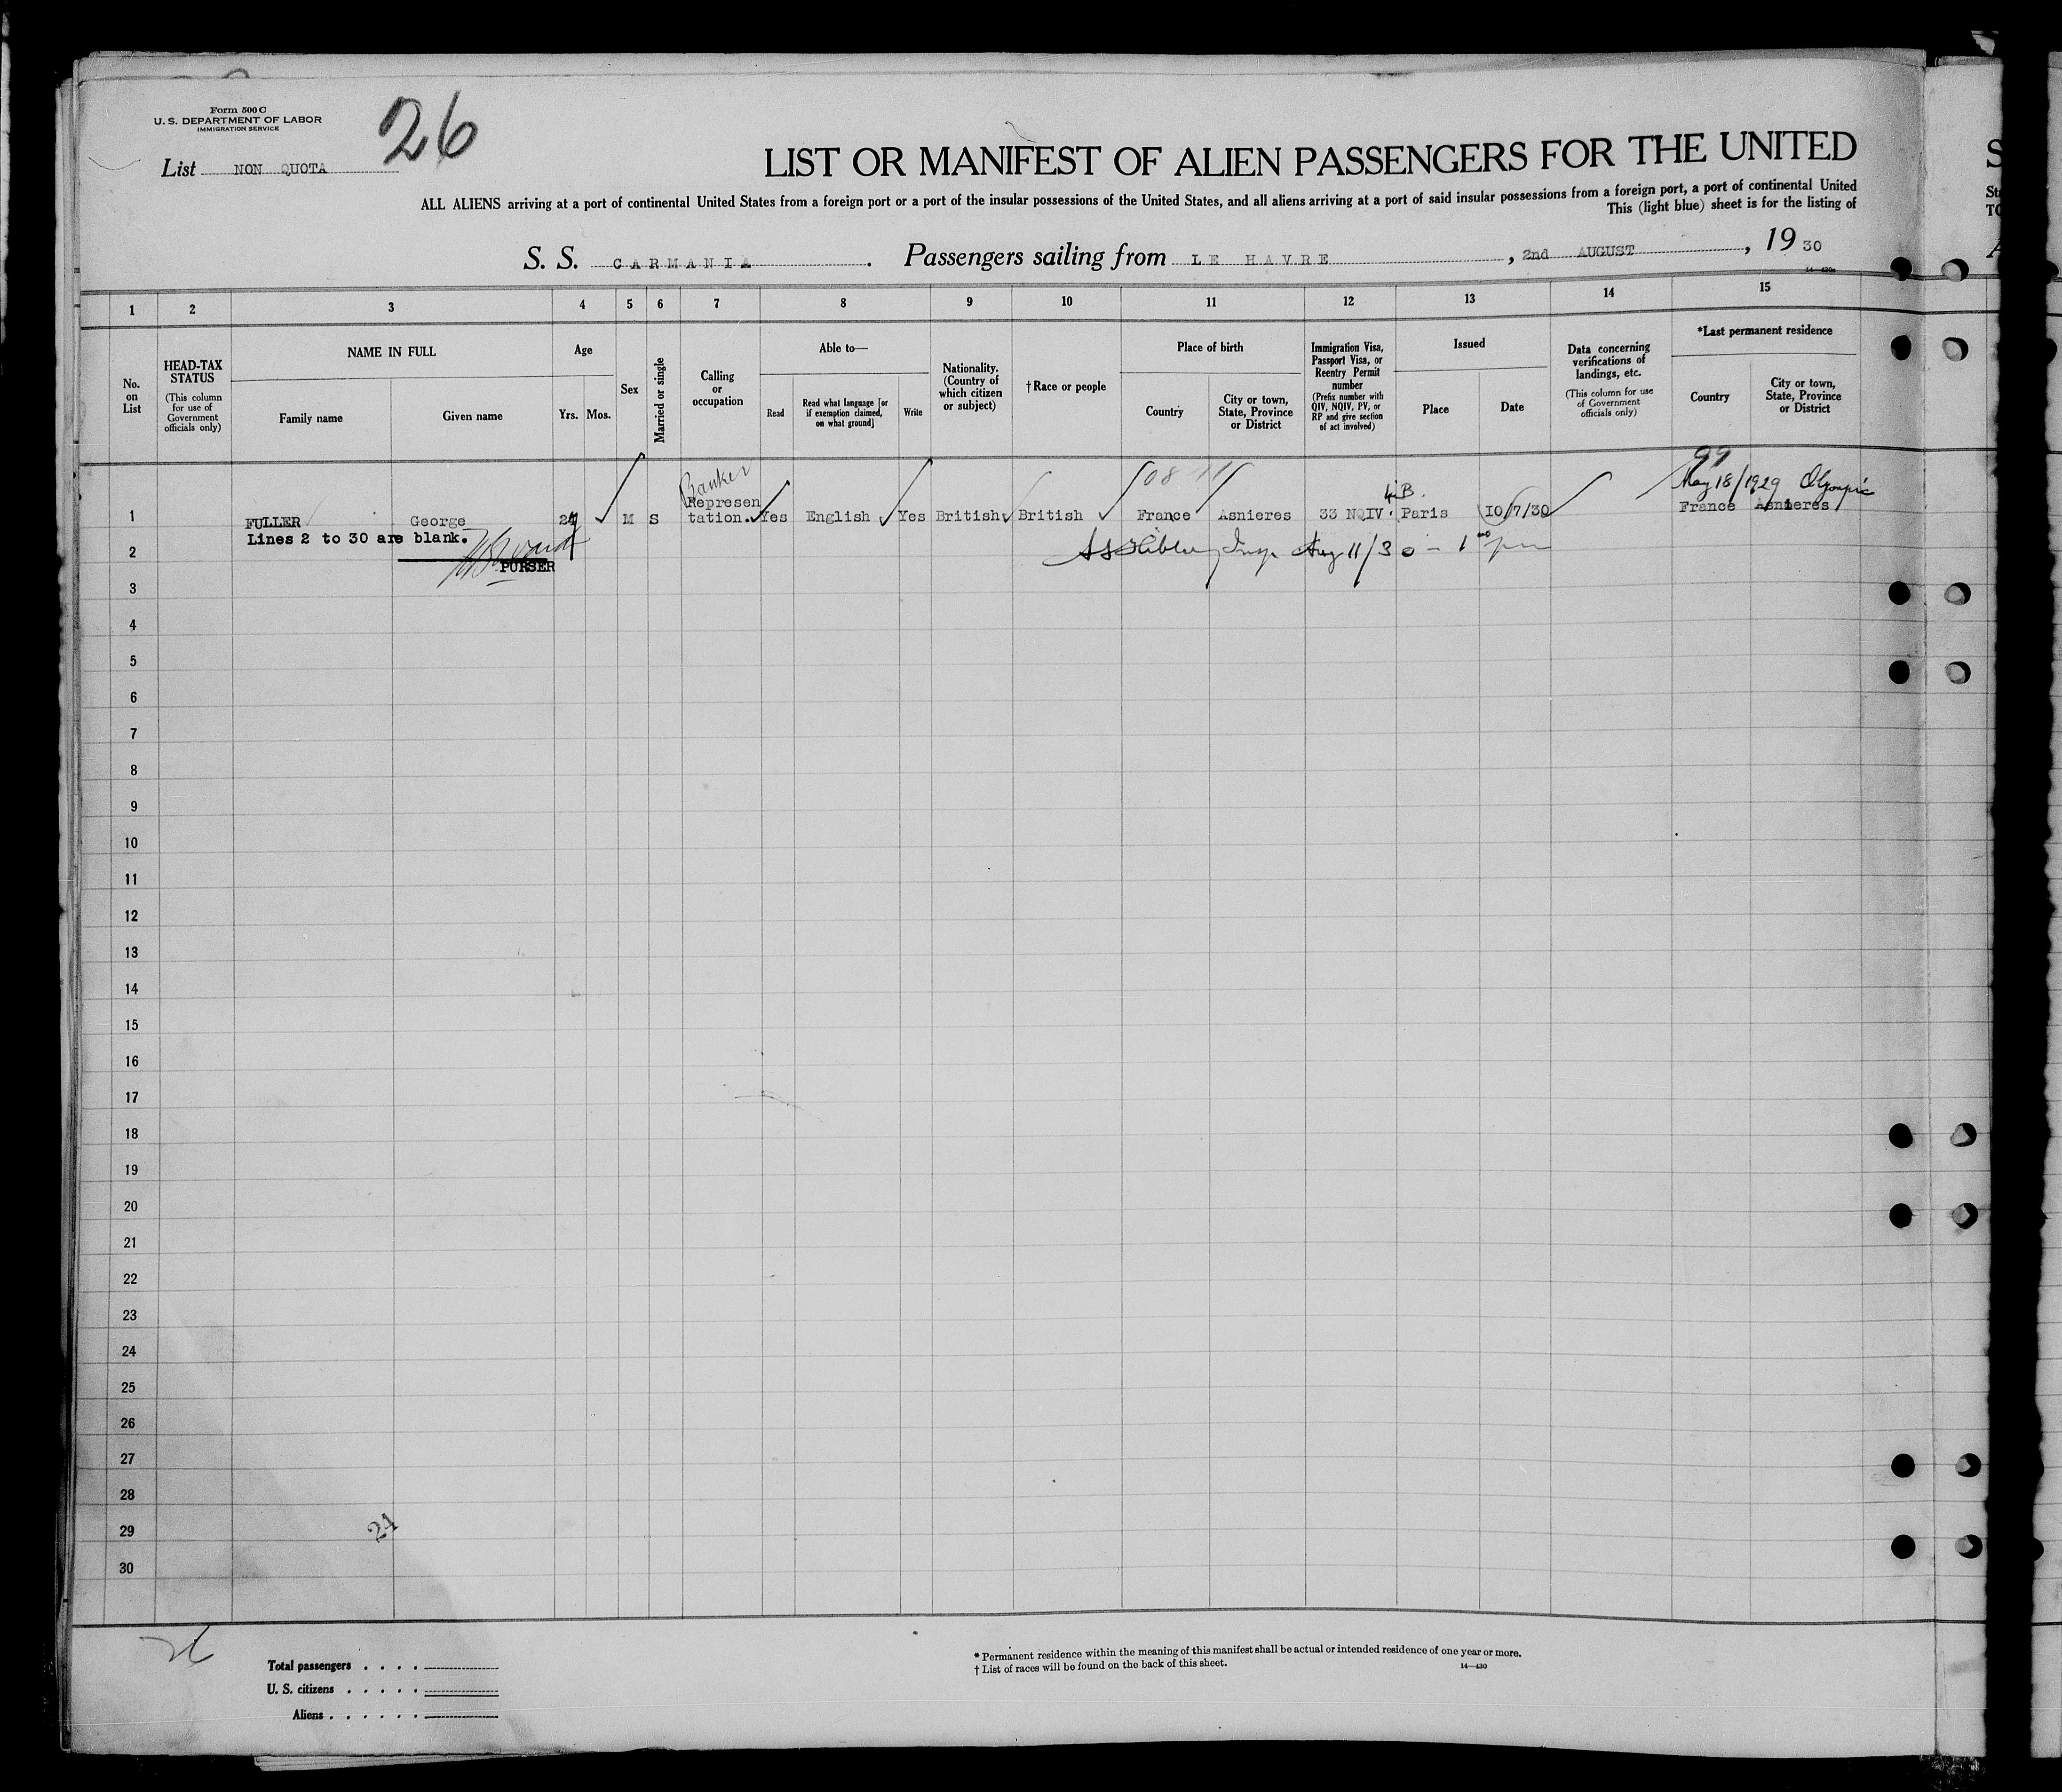 Form 500 C
U. S. DEPARTMENT OF LABOR
IMMIGRATION SERVICE
26
List NON QUOTA
LIST OR MANIFEST OF ALIEN PASSENGERS FOR THE UNITED
ALL ALIENS arriving at a port of continental United States from a foreign port or a port of the insular possessions of the United States, and all aliens arriving at a port of said insular possessions from a foreign port, a port of continental United
This (light blue) sheet is for the listing of
S. S. CARMANIA. Passengers sailing from LE HAVRE, 2nd AUGUST, 1930
1 2 3 4 5 6 7 8 9 10 11 12 13 14 15
No. on List
HEAD-TAX STATUS (This column for use of Government officials only)
NAME IN FULL
Family name
Given name
Age
Yrs.
Mos.
Sex
Married or single
Calling or occupation
Able to—
Read
Read what language [or if exemption claimed, on what ground]
Write
Nationality. (Country of which citizen or subject)
†Race or people
Place of birth
Country
City or town, State, Province or District
Immigration Visa, Passport Visa, or Reentry Permit number (Prefix number with QIV, NQIV, PV, or RP and give section of act involved)
Issued
Place
Date
Data concerning verifications of landings, etc. (This column for use of Government officials only)
*Last permanent residence
Country
City or town, State, Province or District
99
Banker
May 18/1929 Olympic
4B.
1 FULLER George M S Representation. Yes English Yes British British France Asnieres 33 NQIV. Paris 10/7/30 France Asnieres
Lines 2 to 30 are blank.
2 Insp Aug 11/30 – 1 00 pm
PURSER
3
4
5
6
7
8
9
10
11
12
13
14
15
16
17
18
19
20
21
22
23
24
25
26
27
28
29
24
30
26
Total passengers . . . .
U. S. citizens . . . . .
Aliens . . . . . .
* Permanent residence within the meaning of this manifest shall be actual or intended residence of one year or more.
† List of races will be found on the back of this sheet.
14—430